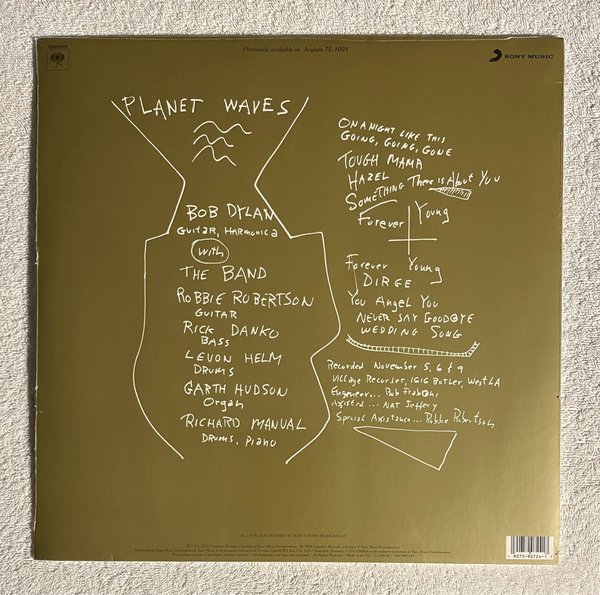 Columbia
Previously available on Asylum 7E-1003
SONY MUSIC
PLANET WAVES
BOB DYLAN
GUITAR, HARMONICA
with
THE BAND
ROBBIE ROBERTSON
GUITAR
RICK DANKO
BASS
LEVON HELM
DRUMS
GARTH HUDSON
Organ
RICHARD MANUAL
DRUMS, PIANO
ON A NIGHT LIKE THIS
GOING, GOING, GONE
TOUGH MAMA
HAZEL
SOMETHING There is About You
Forever Young
Forever Young
DIRGE
You Angel You
NEVER SAY GOODBYE
WEDDING SONG
Recorded November 5, 6 & 9
Village Recorder, 1616 Butler, West LA
Engineer... Rob Fraboni
Assisted... NAT Jeffery
Special Assistance... Robbie Robertson
ALL SONGS PUBLISHED BY RAM'S HORN MUSIC